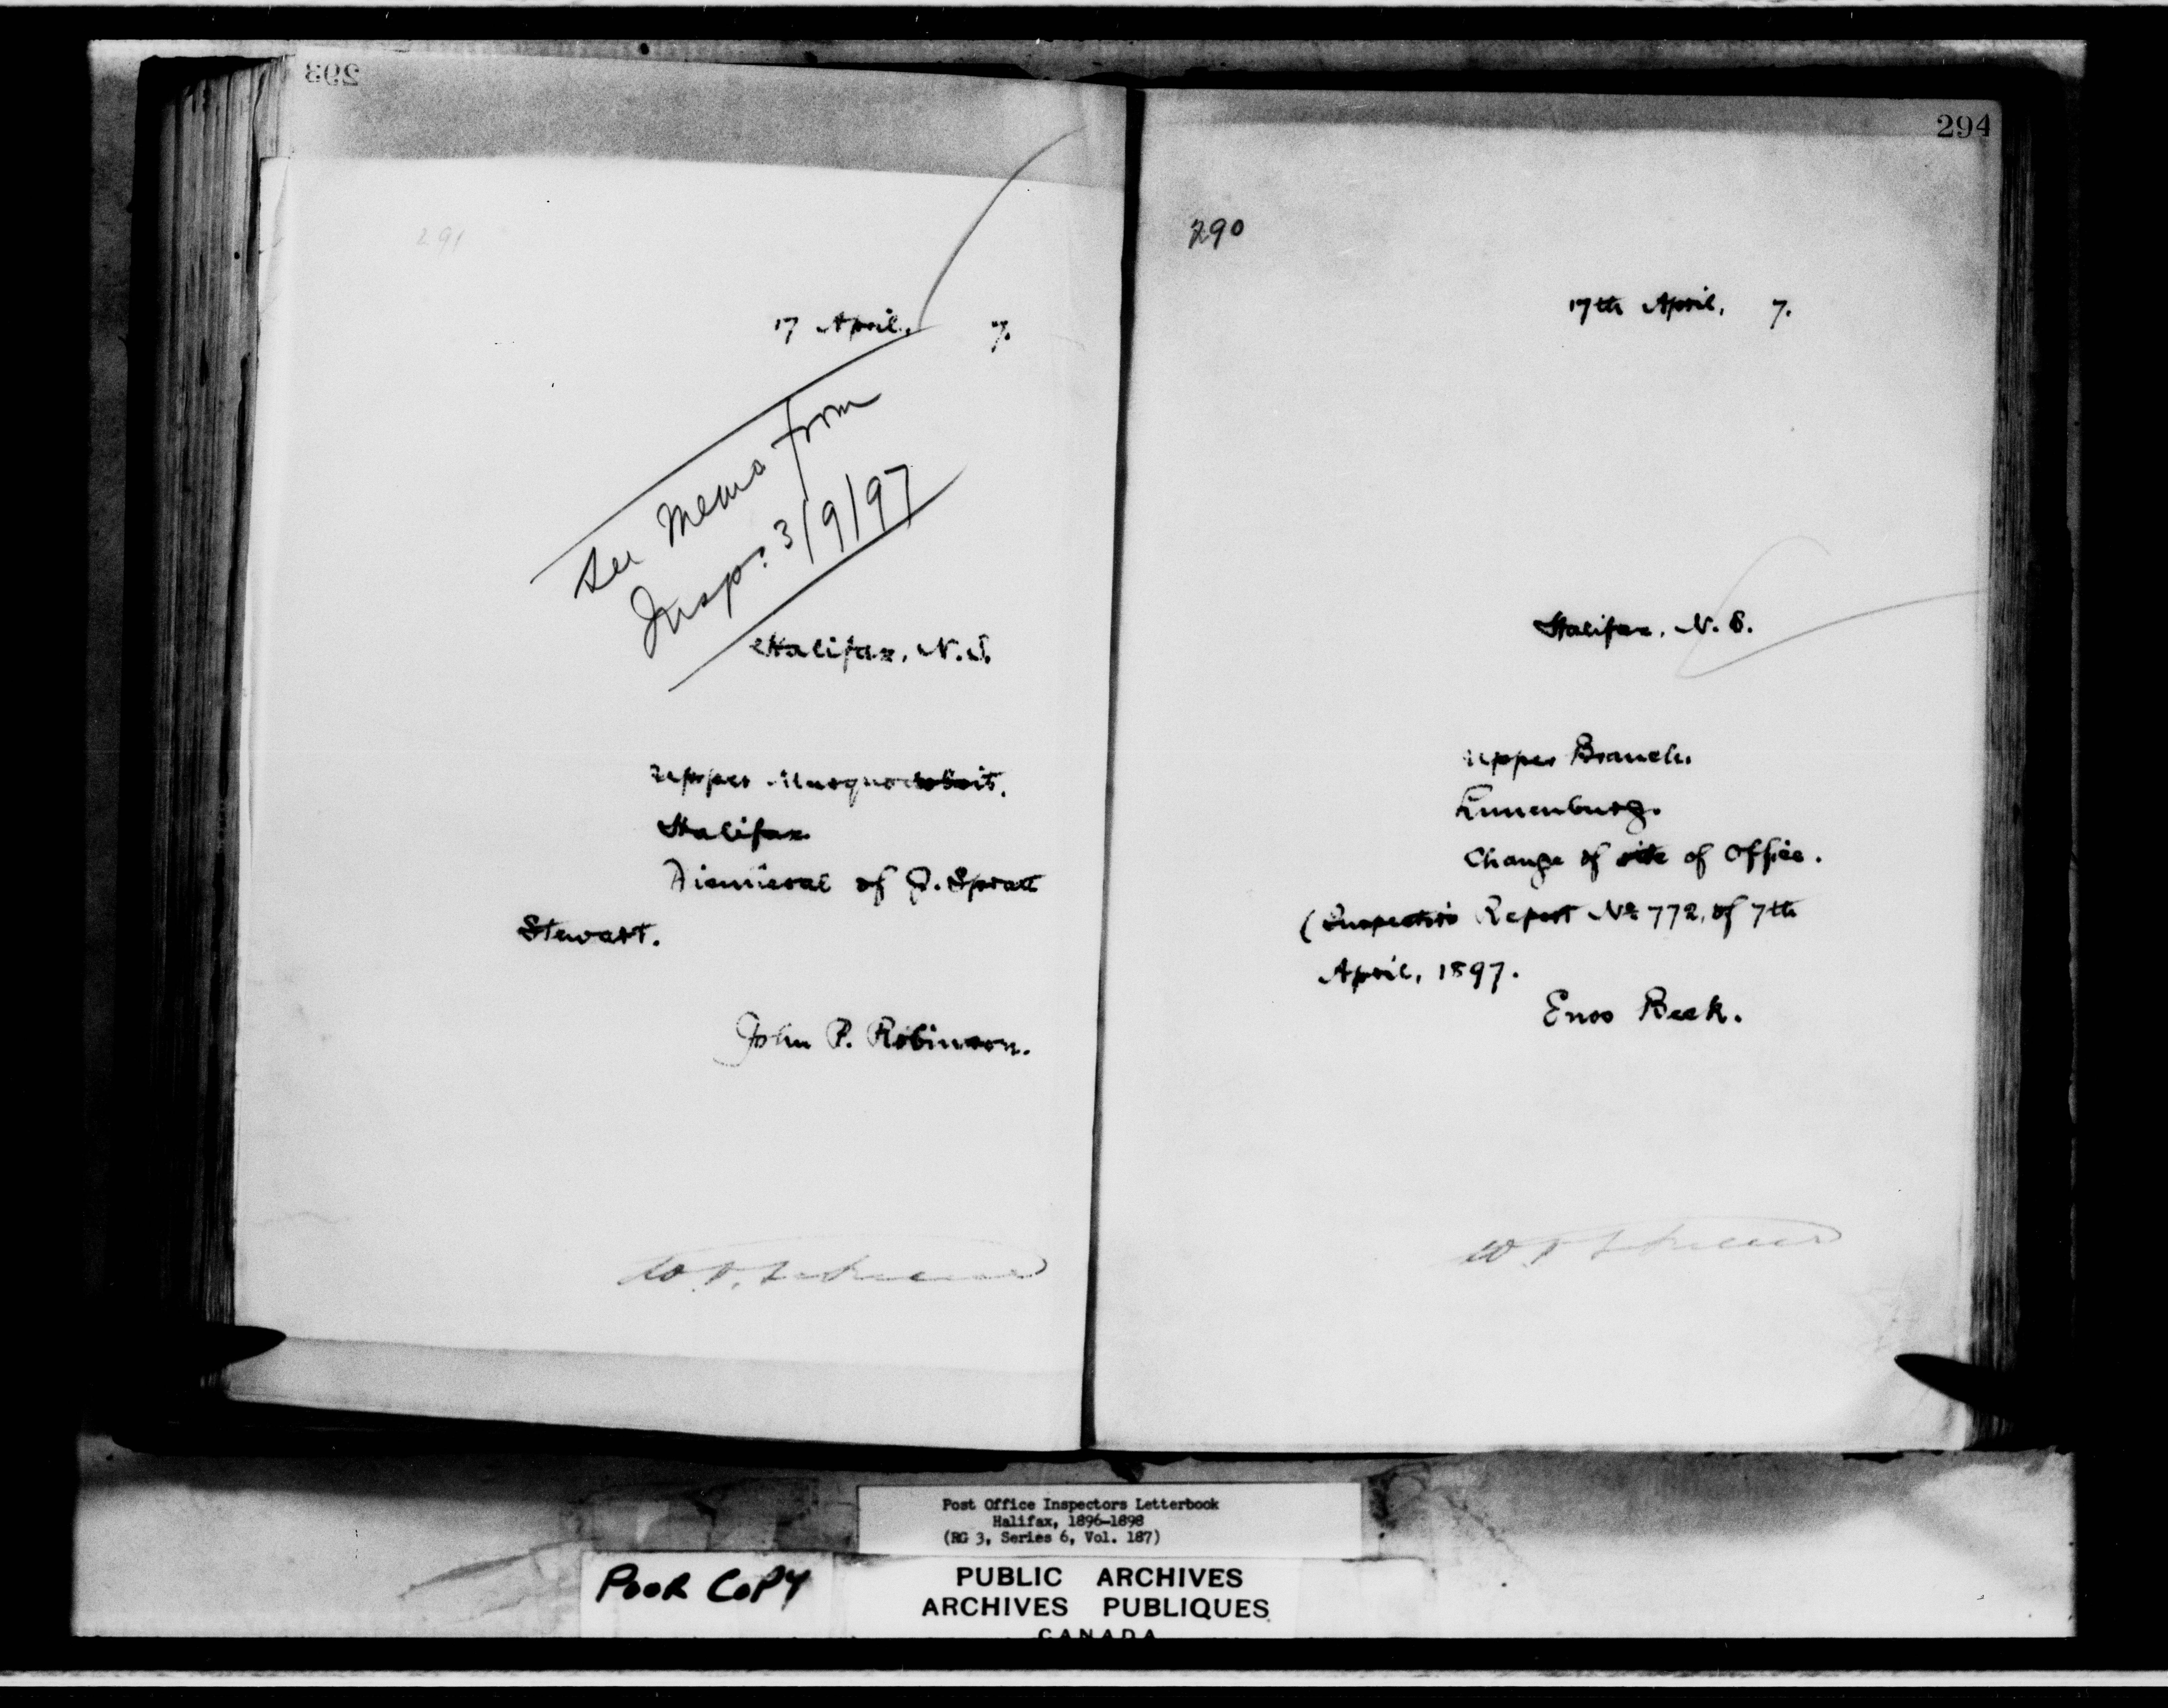 293
291
17 April, 7.
See Memo from
Inspr. 3/9/97
Halifax, N.S.
Upper Musquodoboit.
Halifax
Dismissal of J. Spratt
Stewart.
John P. Robinson.
294
290
17th April, 7.
Halifax, N. S.
Upper Branch.
Lunenburg.
Change of site of Office.
(Inspector's Report No 772, of 7th
April, 1897.
Enos Beck.
Post Office Inspectors Letterbook
Halifax, 1896-1898
(RG 3, Series 6, Vol. 187)
POOR COPY
PUBLIC ARCHIVES
ARCHIVES PUBLIQUES
CANADA